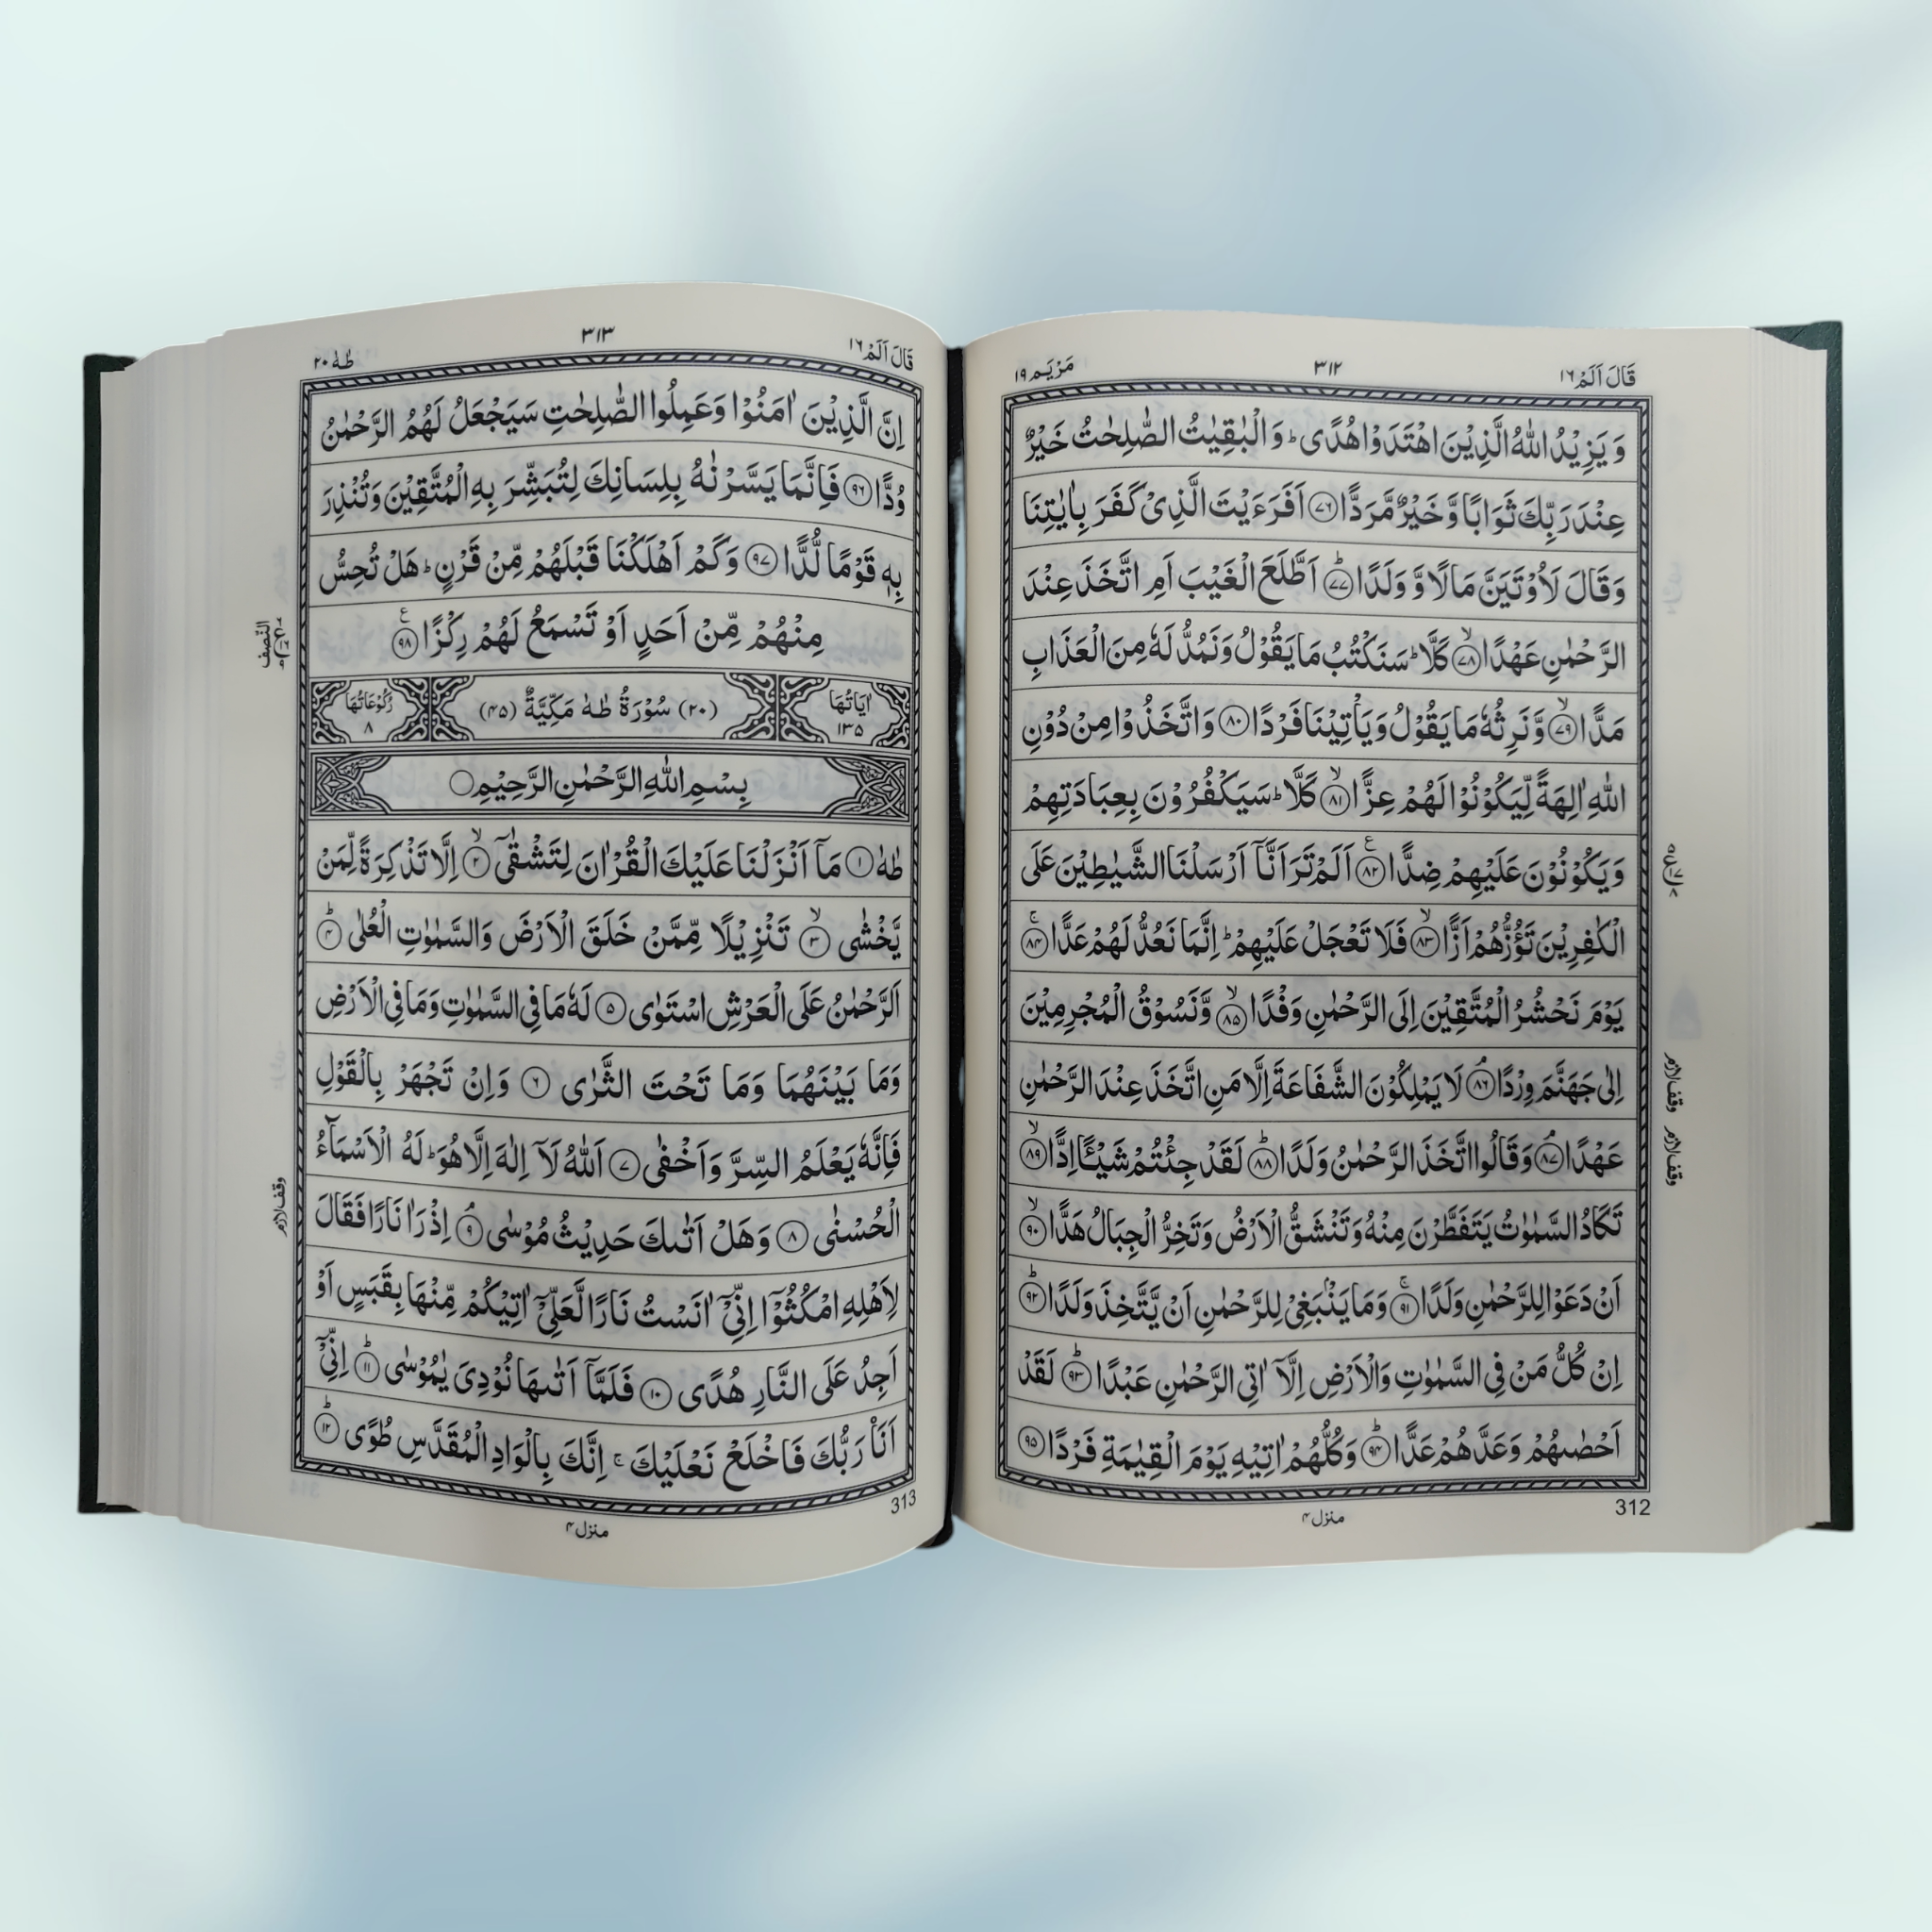 قَالَ اَلَمْ ١٦
٣١٢
مَرْيَم ١٩
وَيَزِيْدُ اللّٰهُ الَّذِيْنَ اهْتَدَوْا هُدًى ؕ وَالْبٰقِيٰتُ الصّٰلِحٰتُ خَيْرٌ
عِنْدَ رَبِّكَ ثَوَابًا وَّخَيْرٌ مَّرَدًّا ﴿٧٦﴾ اَفَرَءَيْتَ الَّذِيْ كَفَرَ بِاٰيٰتِنَا
وَقَالَ لَاُوْتَيَنَّ مَالًا وَّ وَلَدًا ﴿٧٧﴾ؕ اَطَّلَعَ الْغَيْبَ اَمِ اتَّخَذَ عِنْدَ
الرَّحْمٰنِ عَهْدًا ﴿٧٨﴾ۙ كَلَّا ؕ سَنَكْتُبُ مَا يَقُوْلُ وَنَمُدُّ لَهٗ مِنَ الْعَذَابِ
مَدًّا ﴿٧٩﴾ۙ وَّنَرِثُهٗ مَا يَقُوْلُ وَيَاْتِيْنَا فَرْدًا ﴿٨٠﴾ وَاتَّخَذُوْا مِنْ دُوْنِ
اللّٰهِ اٰلِهَةً لِّيَكُوْنُوْا لَهُمْ عِزًّا ﴿٨١﴾ۙ كَلَّا ؕ سَيَكْفُرُوْنَ بِعِبَادَتِهِمْ
وَيَكُوْنُوْنَ عَلَيْهِمْ ضِدًّا ﴿٨٢﴾ع اَلَمْ تَرَ اَنَّآ اَرْسَلْنَا الشَّيٰطِيْنَ عَلَى
الْكٰفِرِيْنَ تَؤُزُّهُمْ اَزًّا ﴿٨٣﴾ۙ فَلَا تَعْجَلْ عَلَيْهِمْ ؕ اِنَّمَا نَعُدُّ لَهُمْ عَدًّا ﴿٨٤﴾ۚ
يَوْمَ نَحْشُرُ الْمُتَّقِيْنَ اِلَى الرَّحْمٰنِ وَفْدًا ﴿٨٥﴾ۙ وَّنَسُوْقُ الْمُجْرِمِيْنَ
اِلٰى جَهَنَّمَ وِرْدًا ﴿٨٦﴾ۘ لَا يَمْلِكُوْنَ الشَّفَاعَةَ اِلَّا مَنِ اتَّخَذَ عِنْدَ الرَّحْمٰنِ
عَهْدًا ﴿٨٧﴾ۘ وَقَالُوا اتَّخَذَ الرَّحْمٰنُ وَلَدًا ﴿٨٨﴾ؕ لَقَدْ جِئْتُمْ شَيْـًٔا اِدًّا ﴿٨٩﴾ۙ
تَكَادُ السَّمٰوٰتُ يَتَفَطَّرْنَ مِنْهُ وَتَنْشَقُّ الْاَرْضُ وَتَخِرُّ الْجِبَالُ هَدًّا ﴿٩٠﴾ۙ
اَنْ دَعَوْا لِلرَّحْمٰنِ وَلَدًا ﴿٩١﴾ۚ وَمَا يَنْۢبَغِيْ لِلرَّحْمٰنِ اَنْ يَّتَّخِذَ وَلَدًا ﴿٩٢﴾ؕ
اِنْ كُلُّ مَنْ فِي السَّمٰوٰتِ وَالْاَرْضِ اِلَّآ اٰتِي الرَّحْمٰنِ عَبْدًا ﴿٩٣﴾ؕ لَقَدْ
اَحْصٰىهُمْ وَعَدَّهُمْ عَدًّا ﴿٩٤﴾ؕ وَكُلُّهُمْ اٰتِيْهِ يَوْمَ الْقِيٰمَةِ فَرْدًا ﴿٩٥﴾
وقف لازم
وقف لازم
312
منزل ۴
قَالَ اَلَمْ ١٦
٣١٣
طٰهٰ ٢٠
اِنَّ الَّذِيْنَ اٰمَنُوْا وَعَمِلُوا الصّٰلِحٰتِ سَيَجْعَلُ لَهُمُ الرَّحْمٰنُ
وُدًّا ﴿٩٦﴾ فَاِنَّمَا يَسَّرْنٰهُ بِلِسَانِكَ لِتُبَشِّرَ بِهِ الْمُتَّقِيْنَ وَتُنْذِرَ
بِهٖ قَوْمًا لُّدًّا ﴿٩٧﴾ وَكَمْ اَهْلَكْنَا قَبْلَهُمْ مِّنْ قَرْنٍ ؕ هَلْ تُحِسُّ
مِنْهُمْ مِّنْ اَحَدٍ اَوْ تَسْمَعُ لَهُمْ رِكْزًا ﴿٩٨﴾ع
النّصف
اٰيَاتُهَا ١٣٥
(٢٠) سُوْرَةُ طٰهٰ مَكِّيَّةٌ (۴۵)
رُكُوْعَاتُهَا ٨
بِسْمِ اللّٰهِ الرَّحْمٰنِ الرَّحِيْمِ ○
طٰهٰ ﴿١﴾ مَآ اَنْزَلْنَا عَلَيْكَ الْقُرْاٰنَ لِتَشْقٰٓى ﴿٢﴾ۙ اِلَّا تَذْكِرَةً لِّمَنْ
يَّخْشٰى ﴿٣﴾ۙ تَنْزِيْلًا مِّمَّنْ خَلَقَ الْاَرْضَ وَالسَّمٰوٰتِ الْعُلٰى ﴿٤﴾ؕ
اَلرَّحْمٰنُ عَلَى الْعَرْشِ اسْتَوٰى ﴿٥﴾ لَهٗ مَا فِي السَّمٰوٰتِ وَمَا فِي الْاَرْضِ
وَمَا بَيْنَهُمَا وَمَا تَحْتَ الثَّرٰى ﴿٦﴾ وَاِنْ تَجْهَرْ بِالْقَوْلِ
فَاِنَّهٗ يَعْلَمُ السِّرَّ وَاَخْفٰى ﴿٧﴾ اَللّٰهُ لَآ اِلٰهَ اِلَّا هُوَ ؕ لَهُ الْاَسْمَآءُ
الْحُسْنٰى ﴿٨﴾ وَهَلْ اَتٰىكَ حَدِيْثُ مُوْسٰى ﴿٩﴾ۘ اِذْ رَاٰ نَارًا فَقَالَ
لِاَهْلِهِ امْكُثُوْٓا اِنِّيْٓ اٰنَسْتُ نَارًا لَّعَلِّيْٓ اٰتِيْكُمْ مِّنْهَا بِقَبَسٍ اَوْ
اَجِدُ عَلَى النَّارِ هُدًى ﴿١٠﴾ فَلَمَّآ اَتٰىهَا نُوْدِيَ يٰمُوْسٰى ﴿١١﴾ؕ اِنِّيْٓ
اَنَا رَبُّكَ فَاخْلَعْ نَعْلَيْكَ ۚ اِنَّكَ بِالْوَادِ الْمُقَدَّسِ طُوًى ﴿١٢﴾ؕ
وقف لازم
313
منزل ۴